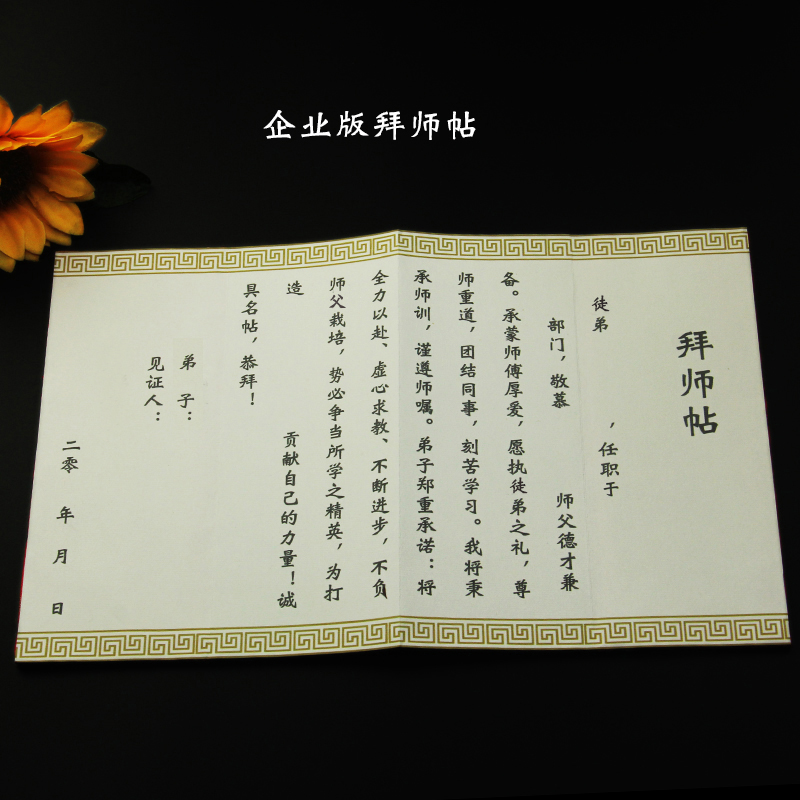 企业版拜师帖
拜师帖
徒弟 ，任职于
部门，敬慕 师父德才兼
备。承蒙师傅厚爱，愿执徒弟之礼，尊
师重道，团结同事，刻苦学习。我将秉
承师训，谨遵师嘱。弟子郑重承诺：将
全力以赴、虚心求教、不断进步，不负
师父栽培，势必争当所学之精英，为打
造 贡献自己的力量！诚
具名帖，恭拜！
弟子：
见证人：
二零 年 月 日